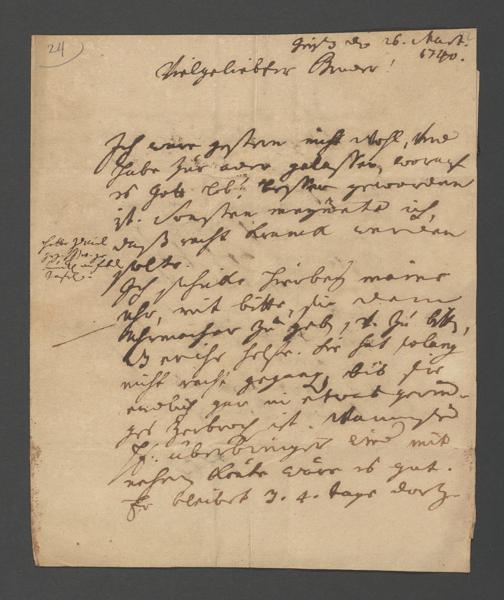 24
den 26. Mart.
1740.
Vielgeliebter Bruder!
Ich ware gestern nicht wohl, und
habe zur ader gelassen, worauf
es Gott lob! besser geworden
ist. Sonsten meynete ich,
daß recht kranck werden
solte.
Ich schicke hierbey meine
Uhr, mit bitte, sie dem
Uhrmacher zu geb, u. zu bitt,
Sie hat solang
nicht recht gegang, biß sie
endlich gar in etwas
ist.
überbringer mit
nehmen könte wäre es gut.
Er bleibet 3. 4. tage dort.